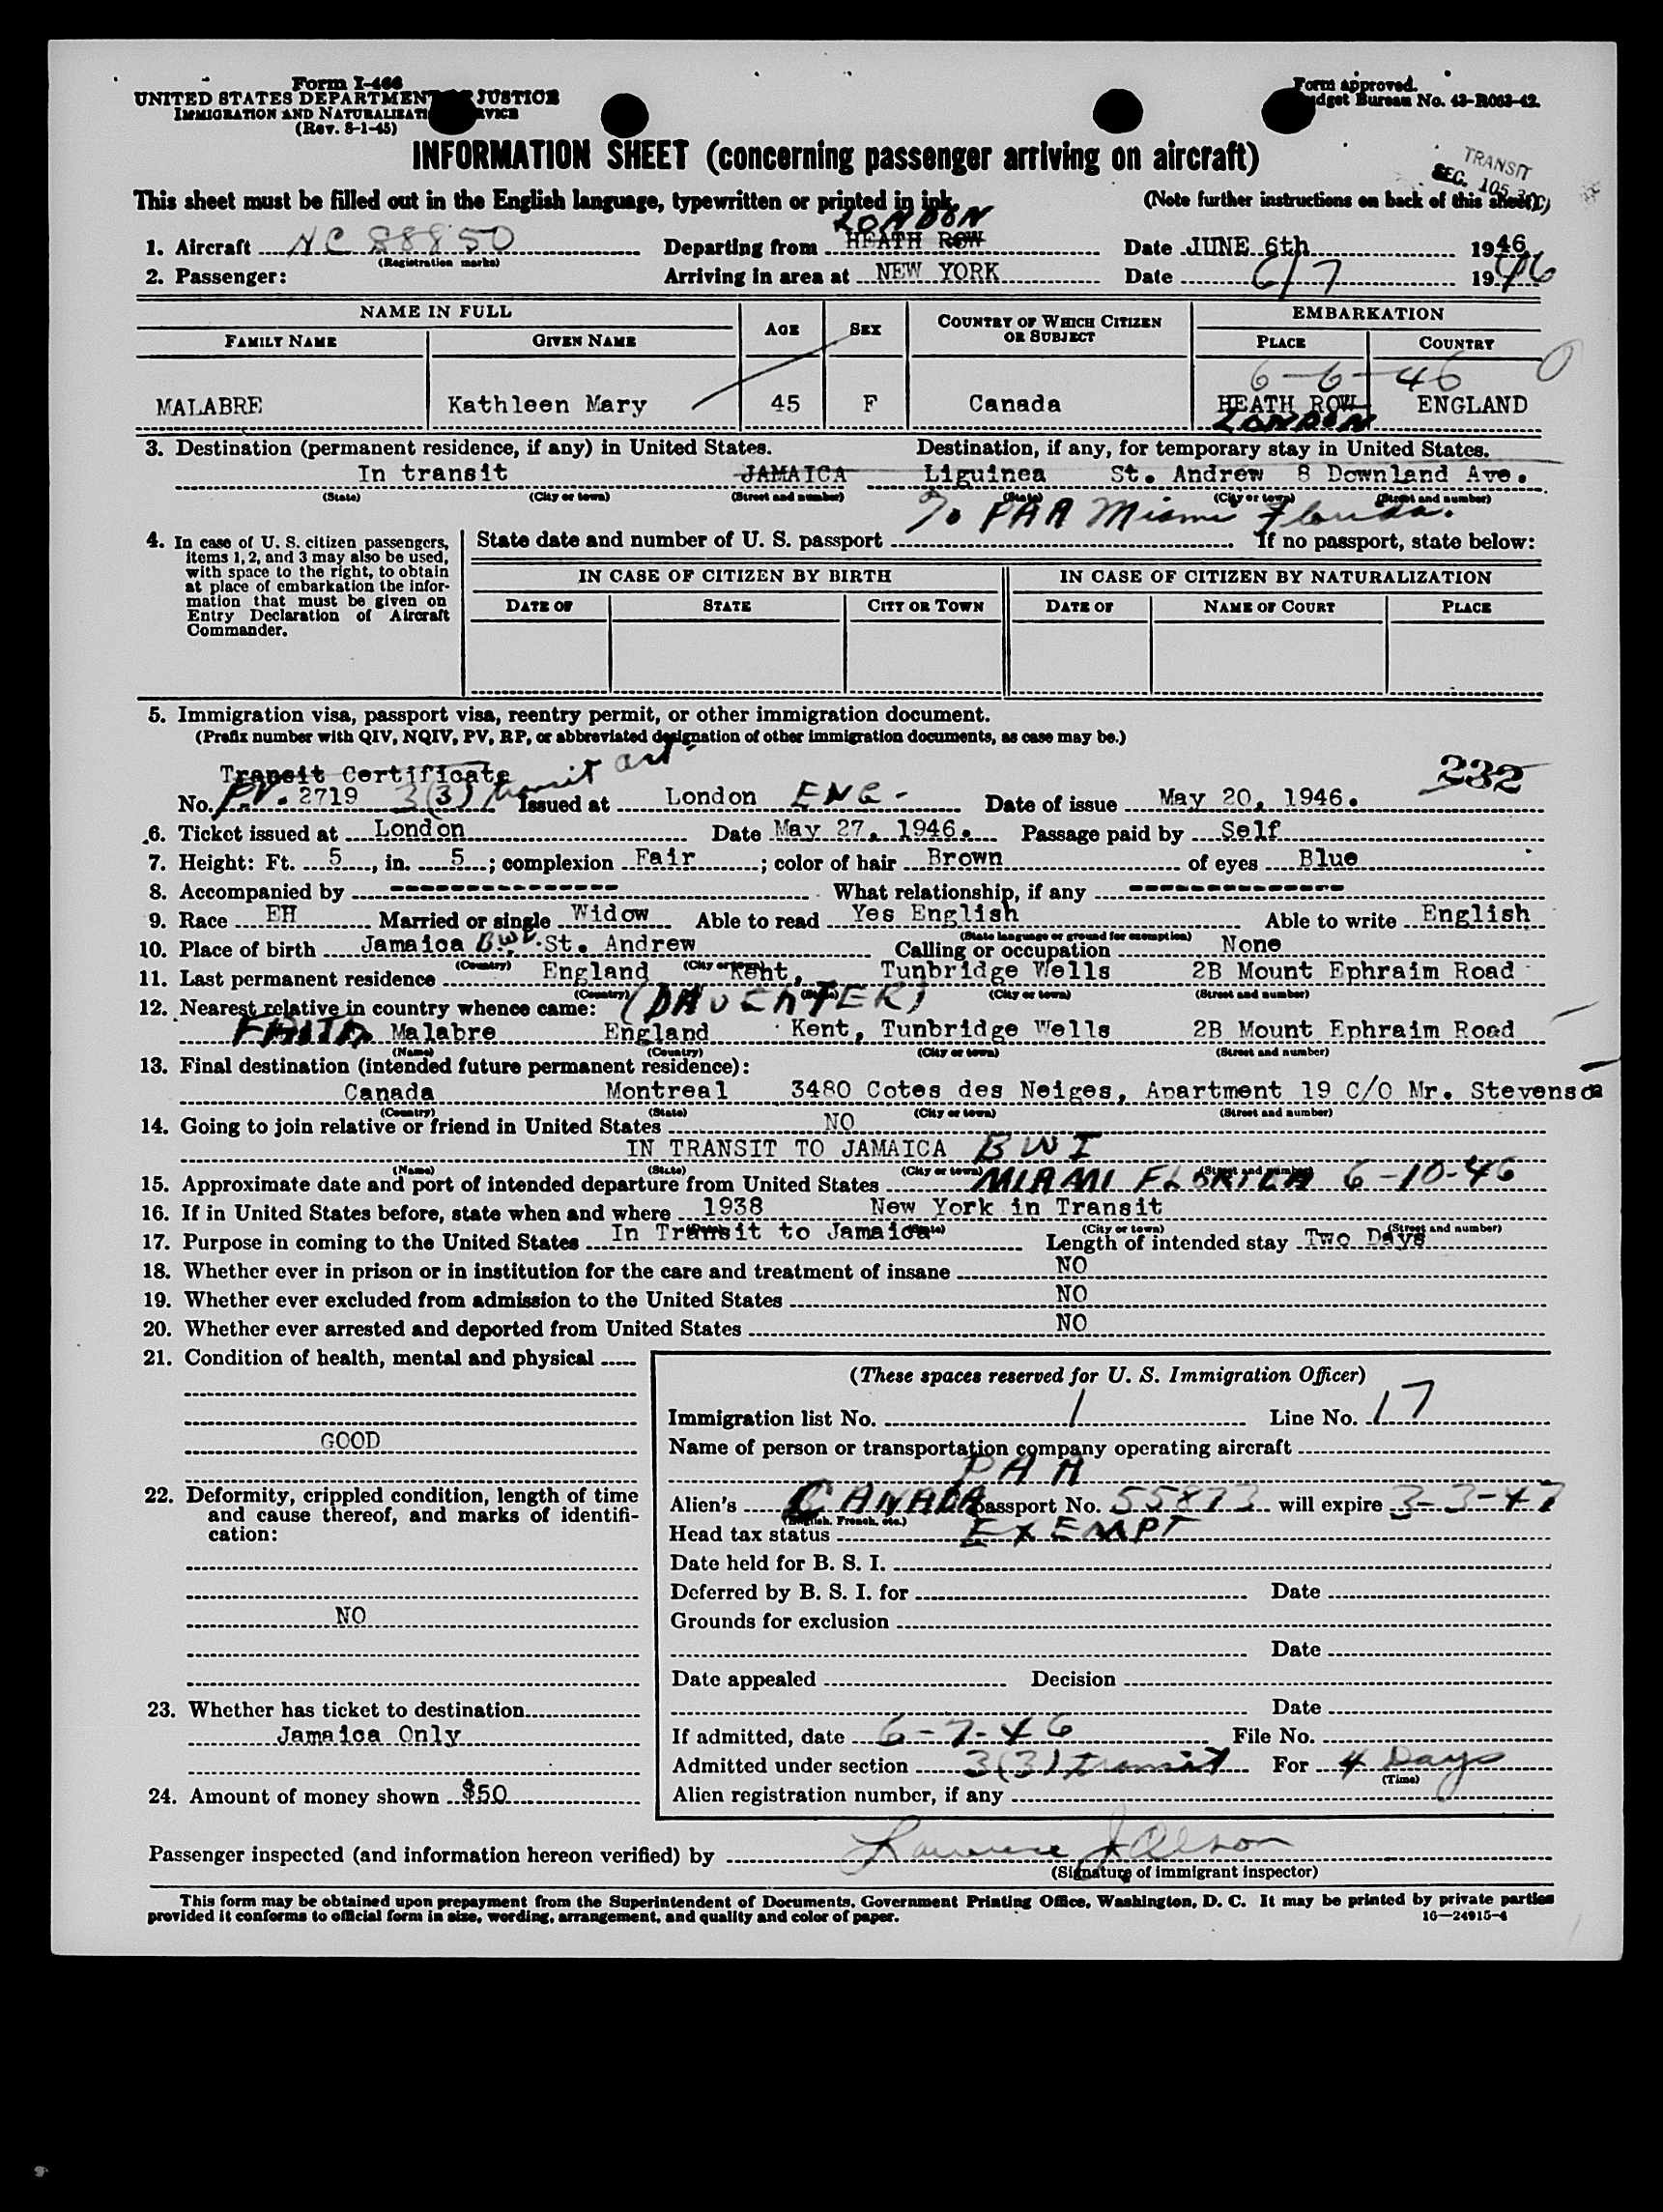 Form I-466
UNITED STATES DEPARTMENT OF JUSTICE
IMMIGRATION AND NATURALIZATION SERVICE
(Rev. 8-1-45)
Form approved.
Budget Bureau No. 43-R063-42.
INFORMATION SHEET (concerning passenger arriving on aircraft)
TRANSIT
SEC. 105.3(C)
This sheet must be filled out in the English language, typewritten or printed in ink. (Note further instructions on back of this sheet)
LONDON
1. Aircraft NC 88850 Departing from HEATH ROW Date JUNE 6th 1946
(Registration marks)
2. Passenger: Arriving in area at NEW YORK Date 6/7 1946
NAME IN FULL AGE SEX COUNTRY OF WHICH CITIZEN OR SUBJECT EMBARKATION
FAMILY NAME GIVEN NAME PLACE COUNTRY
6-6-46
MALABRE Kathleen Mary 45 F Canada HEATH ROW ENGLAND
LONDON
3. Destination (permanent residence, if any) in United States. Destination, if any, for temporary stay in United States.
In transit JAMAICA Liguinea St. Andrew 8 Downland Ave.
(State) (City or town) (Street and number) (State) (City or town) (Street and number)
% PAA Miami Florida.
4. In case of U. S. citizen passengers, items 1, 2, and 3 may also be used, with space to the right, to obtain at place of embarkation the information that must be given on Entry Declaration of Aircraft Commander.
State date and number of U. S. passport If no passport, state below:
IN CASE OF CITIZEN BY BIRTH IN CASE OF CITIZEN BY NATURALIZATION
DATE OF STATE CITY OR TOWN DATE OF NAME OF COURT PLACE
5. Immigration visa, passport visa, reentry permit, or other immigration document.
(Prefix number with QIV, NQIV, PV, RP, or abbreviated designation of other immigration documents, as case may be.)
Transit Certificate 232
No. PV. 2719 3(3) transit Issued at London ENG- Date of issue May 20, 1946.
6. Ticket issued at London Date May 27, 1946. Passage paid by Self
7. Height: Ft. 5, in. 5; complexion Fair; color of hair Brown of eyes Blue
8. Accompanied by ---------------- What relationship, if any ---------------
9. Race EH Married or single Widow Able to read Yes English Able to write English
(State language or ground for exemption)
10. Place of birth Jamaica BWI. St. Andrew Calling or occupation None
(Country) (City or town)
11. Last permanent residence England Kent, Tunbridge Wells 2B Mount Ephraim Road
(Country) (State) (City or town) (Street and number)
12. Nearest relative in country whence came: (DAUGHTER)
FAITH Malabre England Kent, Tunbridge Wells 2B Mount Ephraim Road
(Name) (Country) (City or town) (Street and number)
13. Final destination (intended future permanent residence):
Canada Montreal 3480 Cotes des Neiges, Apartment 19 C/O Mr. Stevenson
(Country) (State) (City or town) (Street and number)
14. Going to join relative or friend in United States NO
IN TRANSIT TO JAMAICA BWI
(Name) (State) (City or town) (Street and number)
15. Approximate date and port of intended departure from United States MIAMI FLORIDA 6-10-46
16. If in United States before, state when and where 1938 New York in Transit
(State) (City or town) (Street and number)
17. Purpose in coming to the United States In Transit to Jamaica Length of intended stay Two Days
18. Whether ever in prison or in institution for the care and treatment of insane NO
19. Whether ever excluded from admission to the United States NO
20. Whether ever arrested and deported from United States NO
21. Condition of health, mental and physical
GOOD
22. Deformity, crippled condition, length of time and cause thereof, and marks of identification:
NO
23. Whether has ticket to destination
Jamaica Only
24. Amount of money shown $50
(These spaces reserved for U. S. Immigration Officer)
Immigration list No. 1 Line No. 17
Name of person or transportation company operating aircraft
PAA
Alien's CANADA passport No. 55873 will expire 3-3-47
(English, French, etc.)
Head tax status EXEMPT
Date held for B. S. I.
Deferred by B. S. I. for Date
Grounds for exclusion
Date
Date appealed Decision
Date
If admitted, date 6-7-46 File No.
Admitted under section 3(3) transit For 4 Days
(Time)
Alien registration number, if any
Passenger inspected (and information hereon verified) by
(Signature of immigrant inspector)
This form may be obtained upon prepayment from the Superintendent of Documents, Government Printing Office, Washington, D. C. It may be printed by private parties
provided it conforms to official form in size, wording, arrangement, and quality and color of paper. 16—24915-4